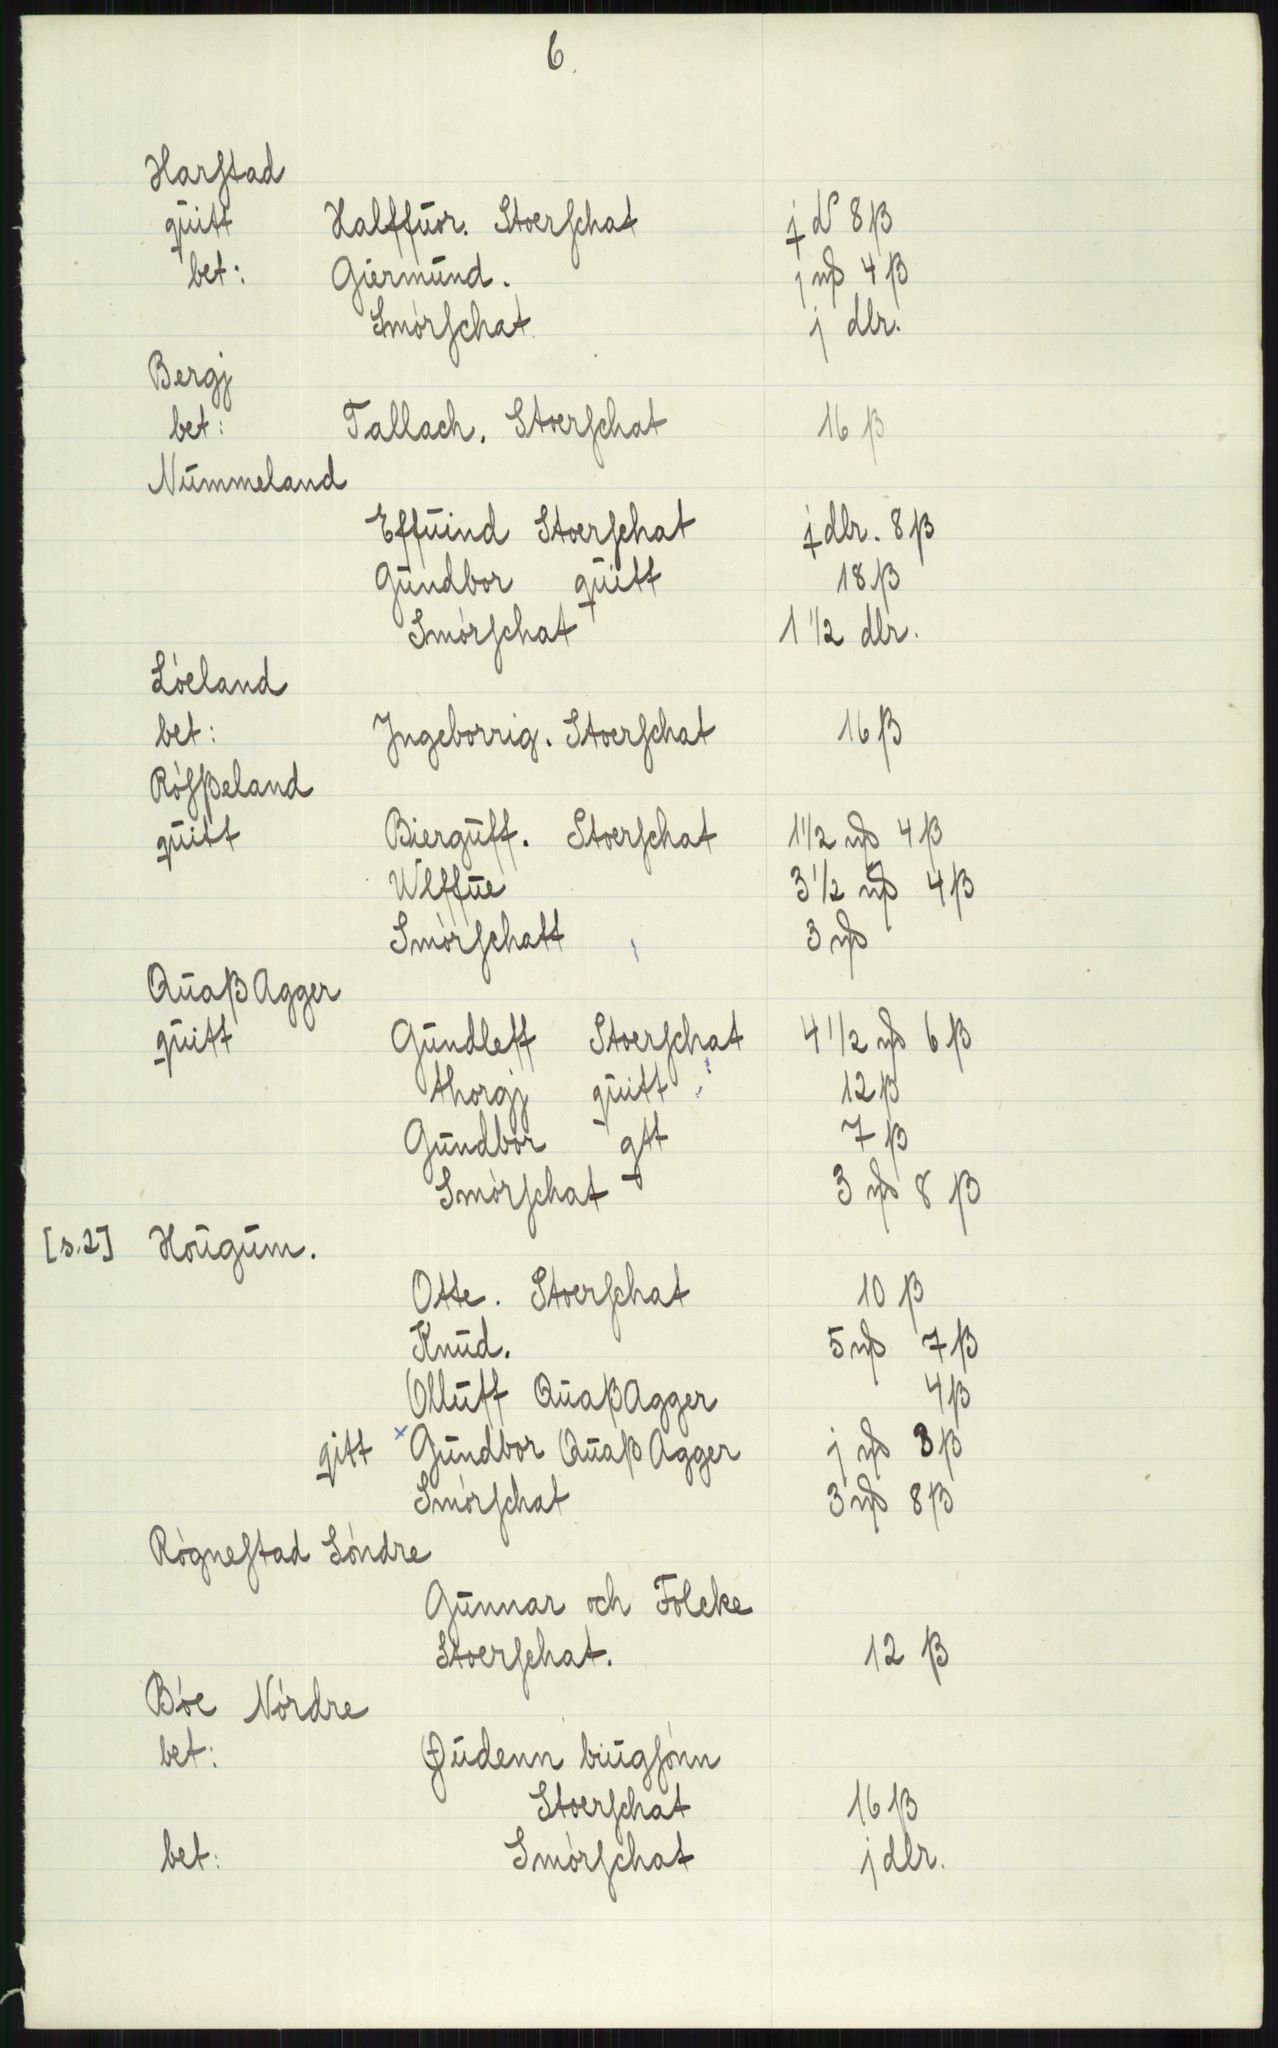 6.
Harstad
quitt Halffuor. Stoerschat j d 8 β
bet: Giermund. j mβ 4 β
Smörschat j dlr.
Bergj
bet: Tallach. Stoerschat 16 β
Nummeland
Effuind Stoerschat j dlr. 8 β
Gundbor quitt 18 β
Smörschat 1 1/2 dlr.
Löeland
bet: Jngeborrig. Stoerschat 16 β
Rösβeland
quitt Bierguff. Stoerschat 1 1/2 mβ 4 β
Wlffue 3 1/2 mβ 4 β
Smörschatt 3 mβ
Quaβ Agger
quitt Gundleff Stoerschat 4 1/2 mβ 6 β
thorgj quitt 12 β
Gundbor qtt 7 β
Smörschat 3 mβ 8 β
[s.2] Hougum.
Otte. Stoerschat 10 β
Knud. 5 mβ 7 β
Olluff Quaβ Agger 4 β
qitt x Gundbor Quaβ Agger j mβ 3 β
Smörschat 3 mβ 8 β
Rögnestad Söndre
Gunnar och Folcke
Stoerschat. 12 β
Böe Nördre
bet: Øudenn biugsönn
Stoerschat 16 β
bet: Smörschat j dlr.